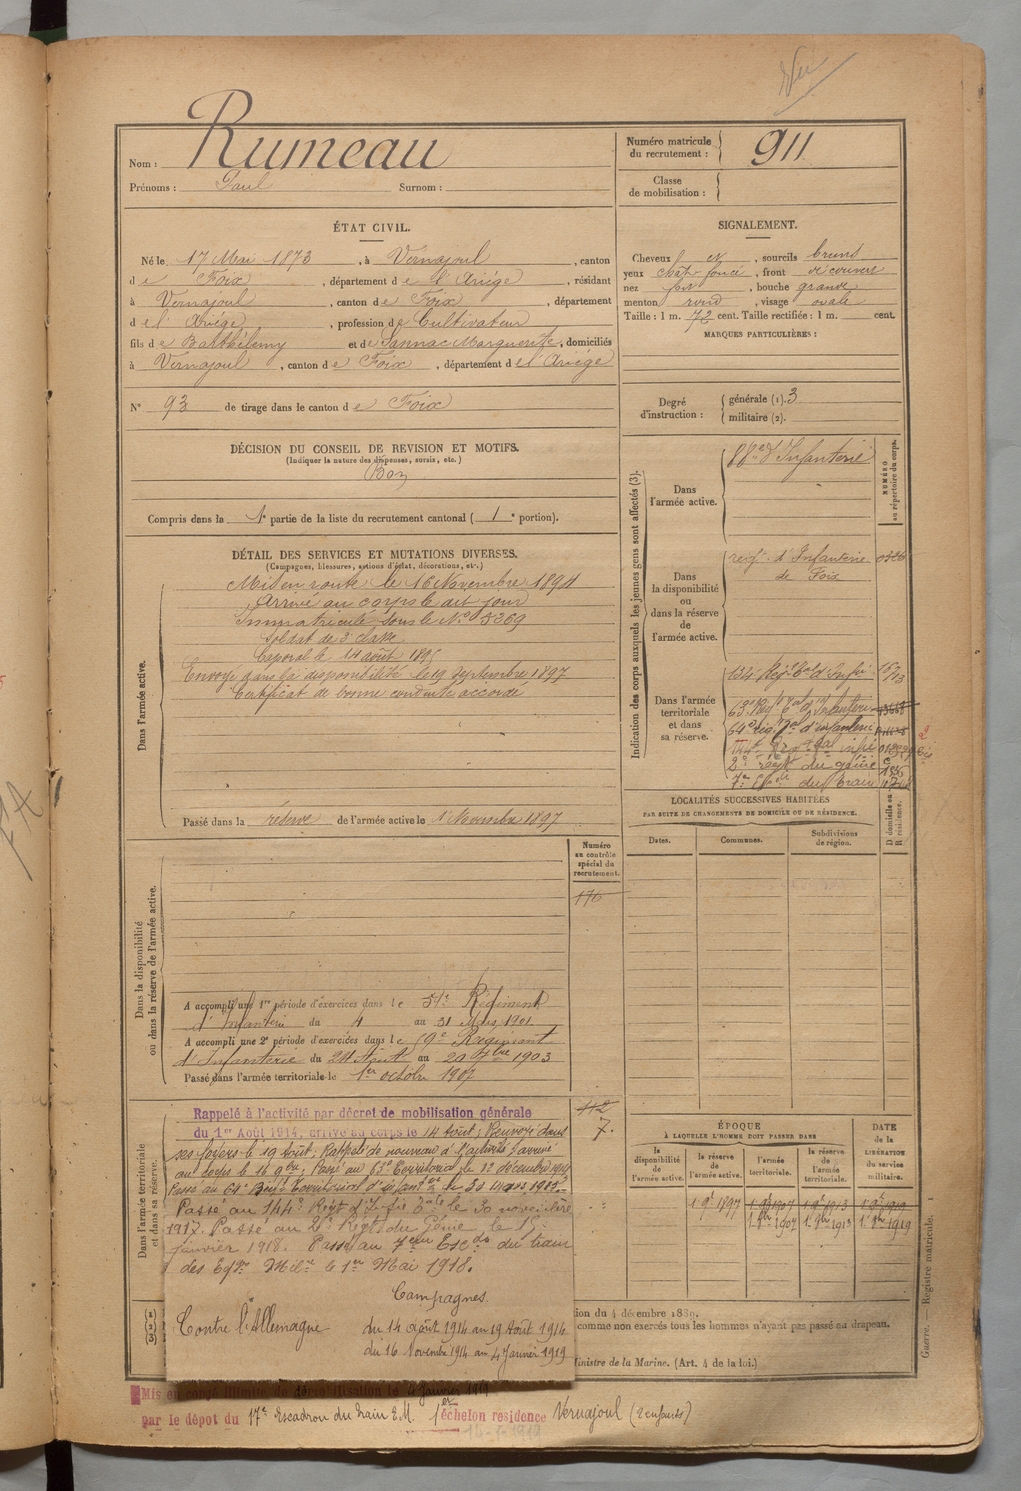 Vu
Nom : Rumeau
Prénoms : Paul Surnom :
Numéro matricule du recrutement : 911
Classe de mobilisation :
ÉTAT CIVIL.
Né le 17 Mai 1873, à Vernajoul, canton
de Foix, département de l'Ariége, résidant
à Vernajoul, canton de Foix, département
de l'Ariége, profession de Cultivateur
fils de Barthélemy et de Sannac Marguerite, domiciliés
à Vernajoul, canton de Foix, département de l'Ariége
N° 93 de tirage dans le canton de Foix
SIGNALEMENT.
Cheveux et, sourcils bruns
yeux chât. foncé, front découvert
nez fort, bouche grande
menton rond, visage ovale
Taille : 1 m. 72 cent. Taille rectifiée : 1 m. cent.
MARQUES PARTICULIÈRES :
Degré d'instruction : générale (1). 3
militaire (2).
DÉCISION DU CONSEIL DE REVISION ET MOTIFS.
(Indiquer la nature des dispenses, sursis, etc.)
Bon
Compris dans la 1e partie de la liste du recrutement cantonal ( 1e portion).
DÉTAIL DES SERVICES ET MUTATIONS DIVERSES.
(Campagnes, blessures, actions d'éclat, décorations, etc.)
Dans l'armée active.
Mis en route le 16 Novembre 1894
Arrivé au corps le dit jour
Immatriculé sous le N° 5269
Soldat de 2e classe
Caporal le 14 août 1895
Envoyé dans la disponibilité le 19 Septembre 1897
Certificat de bonne conduite accordé
Passé dans la réserve de l'armée active le 1 Novembre 1897
Indication des corps auxquels les jeunes gens sont affectés (3).
NUMÉRO au répertoire du corps.
Dans l'armée active.
88e d'Infanterie
Dans la disponibilité ou dans la réserve de l'armée active.
régt d'Infanterie
de Foix
Dans l'armée territoriale et dans sa réserve.
134 Régt tal d'Infie
63e Régt Tal d'Infanterie
64e régt Tal d'infanterie
144e Régt tal infie
2e régt du génie
7e Esc. du train
LOCALITÉS SUCCESSIVES HABITÉES
PAR SUITE DE CHANGEMENTS DE DOMICILE OU DE RÉSIDENCE.
Dates. Communes. Subdivisions de région.
D domicile ou R résidence.
Dans la disponibilité ou dans la réserve de l'armée active.
Numéro au contrôle spécial du recrutement.
176
A accompli une 1re période d'exercices dans le 51e Régiment
d'Infanterie du 4 au 31 Mars 1901
A accompli une 2e période d'exercices dans le 9e Régiment
d'Infanterie du 24 Août au 20 7bre 1903
Passé dans l'armée territoriale le 1er octobre 1907
Dans l'armée territoriale et dans sa réserve.
112
7.
Rappelé à l'activité par décret de mobilisation générale
du 1er Août 1914, arrivé au corps le 14 Août; Renvoyé dans
ses foyers le 19 Août; Rappelé de nouveau à l'activité; arrivé
au corps le 16 9bre; Passé au 63e Territorial le 12 décembre 1914
Passé au 64e Régt Territorial d'infanterie le 30 mars 1915
Passé au 144e Régt d'Infie Tale le 30 novembre
1917. Passé au 2e Régt du Génie le 15
janvier 1918. Passé au 7eme Escon du train
des Eqges Milres le 1er Mai 1918.
Campagnes
Contre l'Allemagne du 14 août 1914 au 19 Août 1914
du 16 Novembre 1914 au 4 Janvier 1919
ÉPOQUE
À LAQUELLE L'HOMME DOIT PASSER DANS
DATE de la LIBÉRATION du service militaire.
la disponibilité de l'armée active. la réserve de l'armée active. l'armée territoriale. la réserve de l'armée territoriale.
1 9e 1897 1 9e 1907 1 9e 1913 1 9e 1919
1er 8bre 1907 1er 9bre 1913 1er 9bre 1919
tion du 4 décembre 1889.
comme non exercés tous les hommes n'ayant pas passé au drapeau.
Ministre de la Marine. (Art. 4 de la loi.)
Guerre. — Registre matricule. 1
Mis en congé illimité de démobilisation le 4 janvier 1919
par le dépot du 17e Escadron du train E.M. 1er échelon residence Vernajoul (2 enfants)